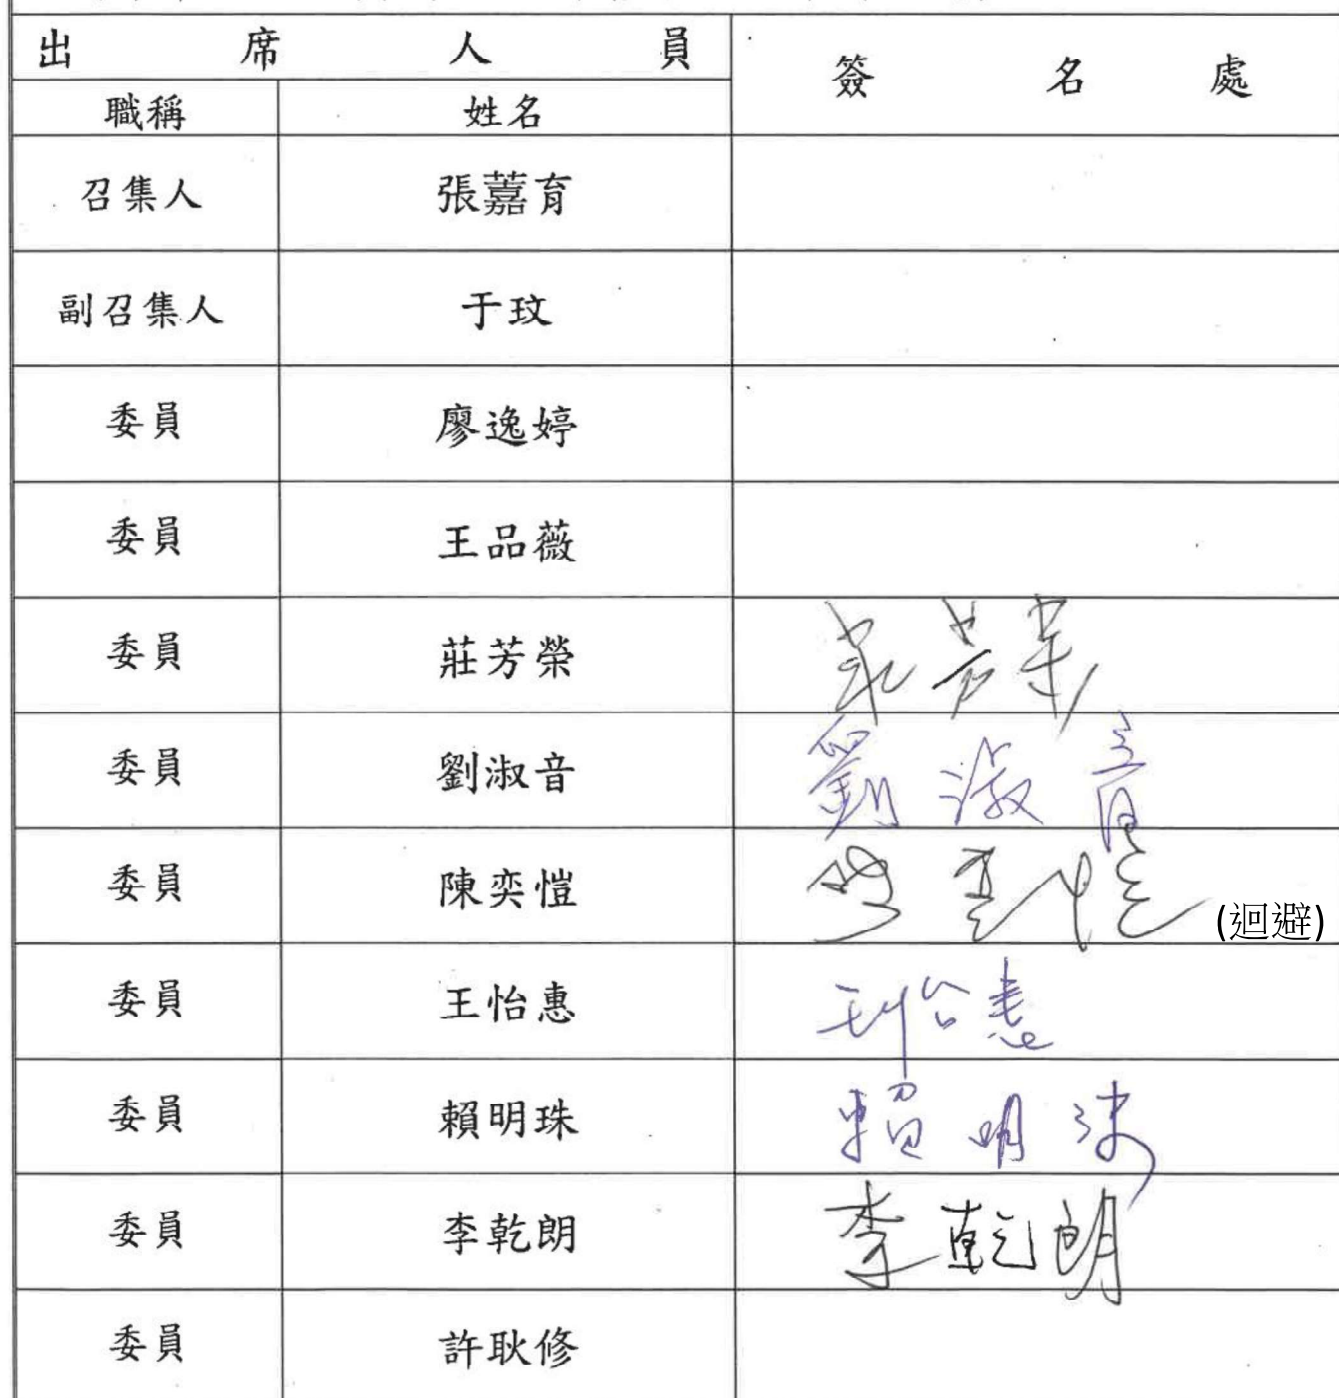 出席人員 簽名處
職稱 姓名
召集人 張蕭育
副召集人 于玟
委員 廖逸婷
委員 王品薇
委員 莊芳榮 莊芳榮
委員 劉淑音 劉淑音
委員 陳奕愷 陳奕愷 (迴避)
委員 王怡惠 王怡惠
委員 賴明珠 賴明珠
委員 李乾朗 李乾朗
委員 許耿修